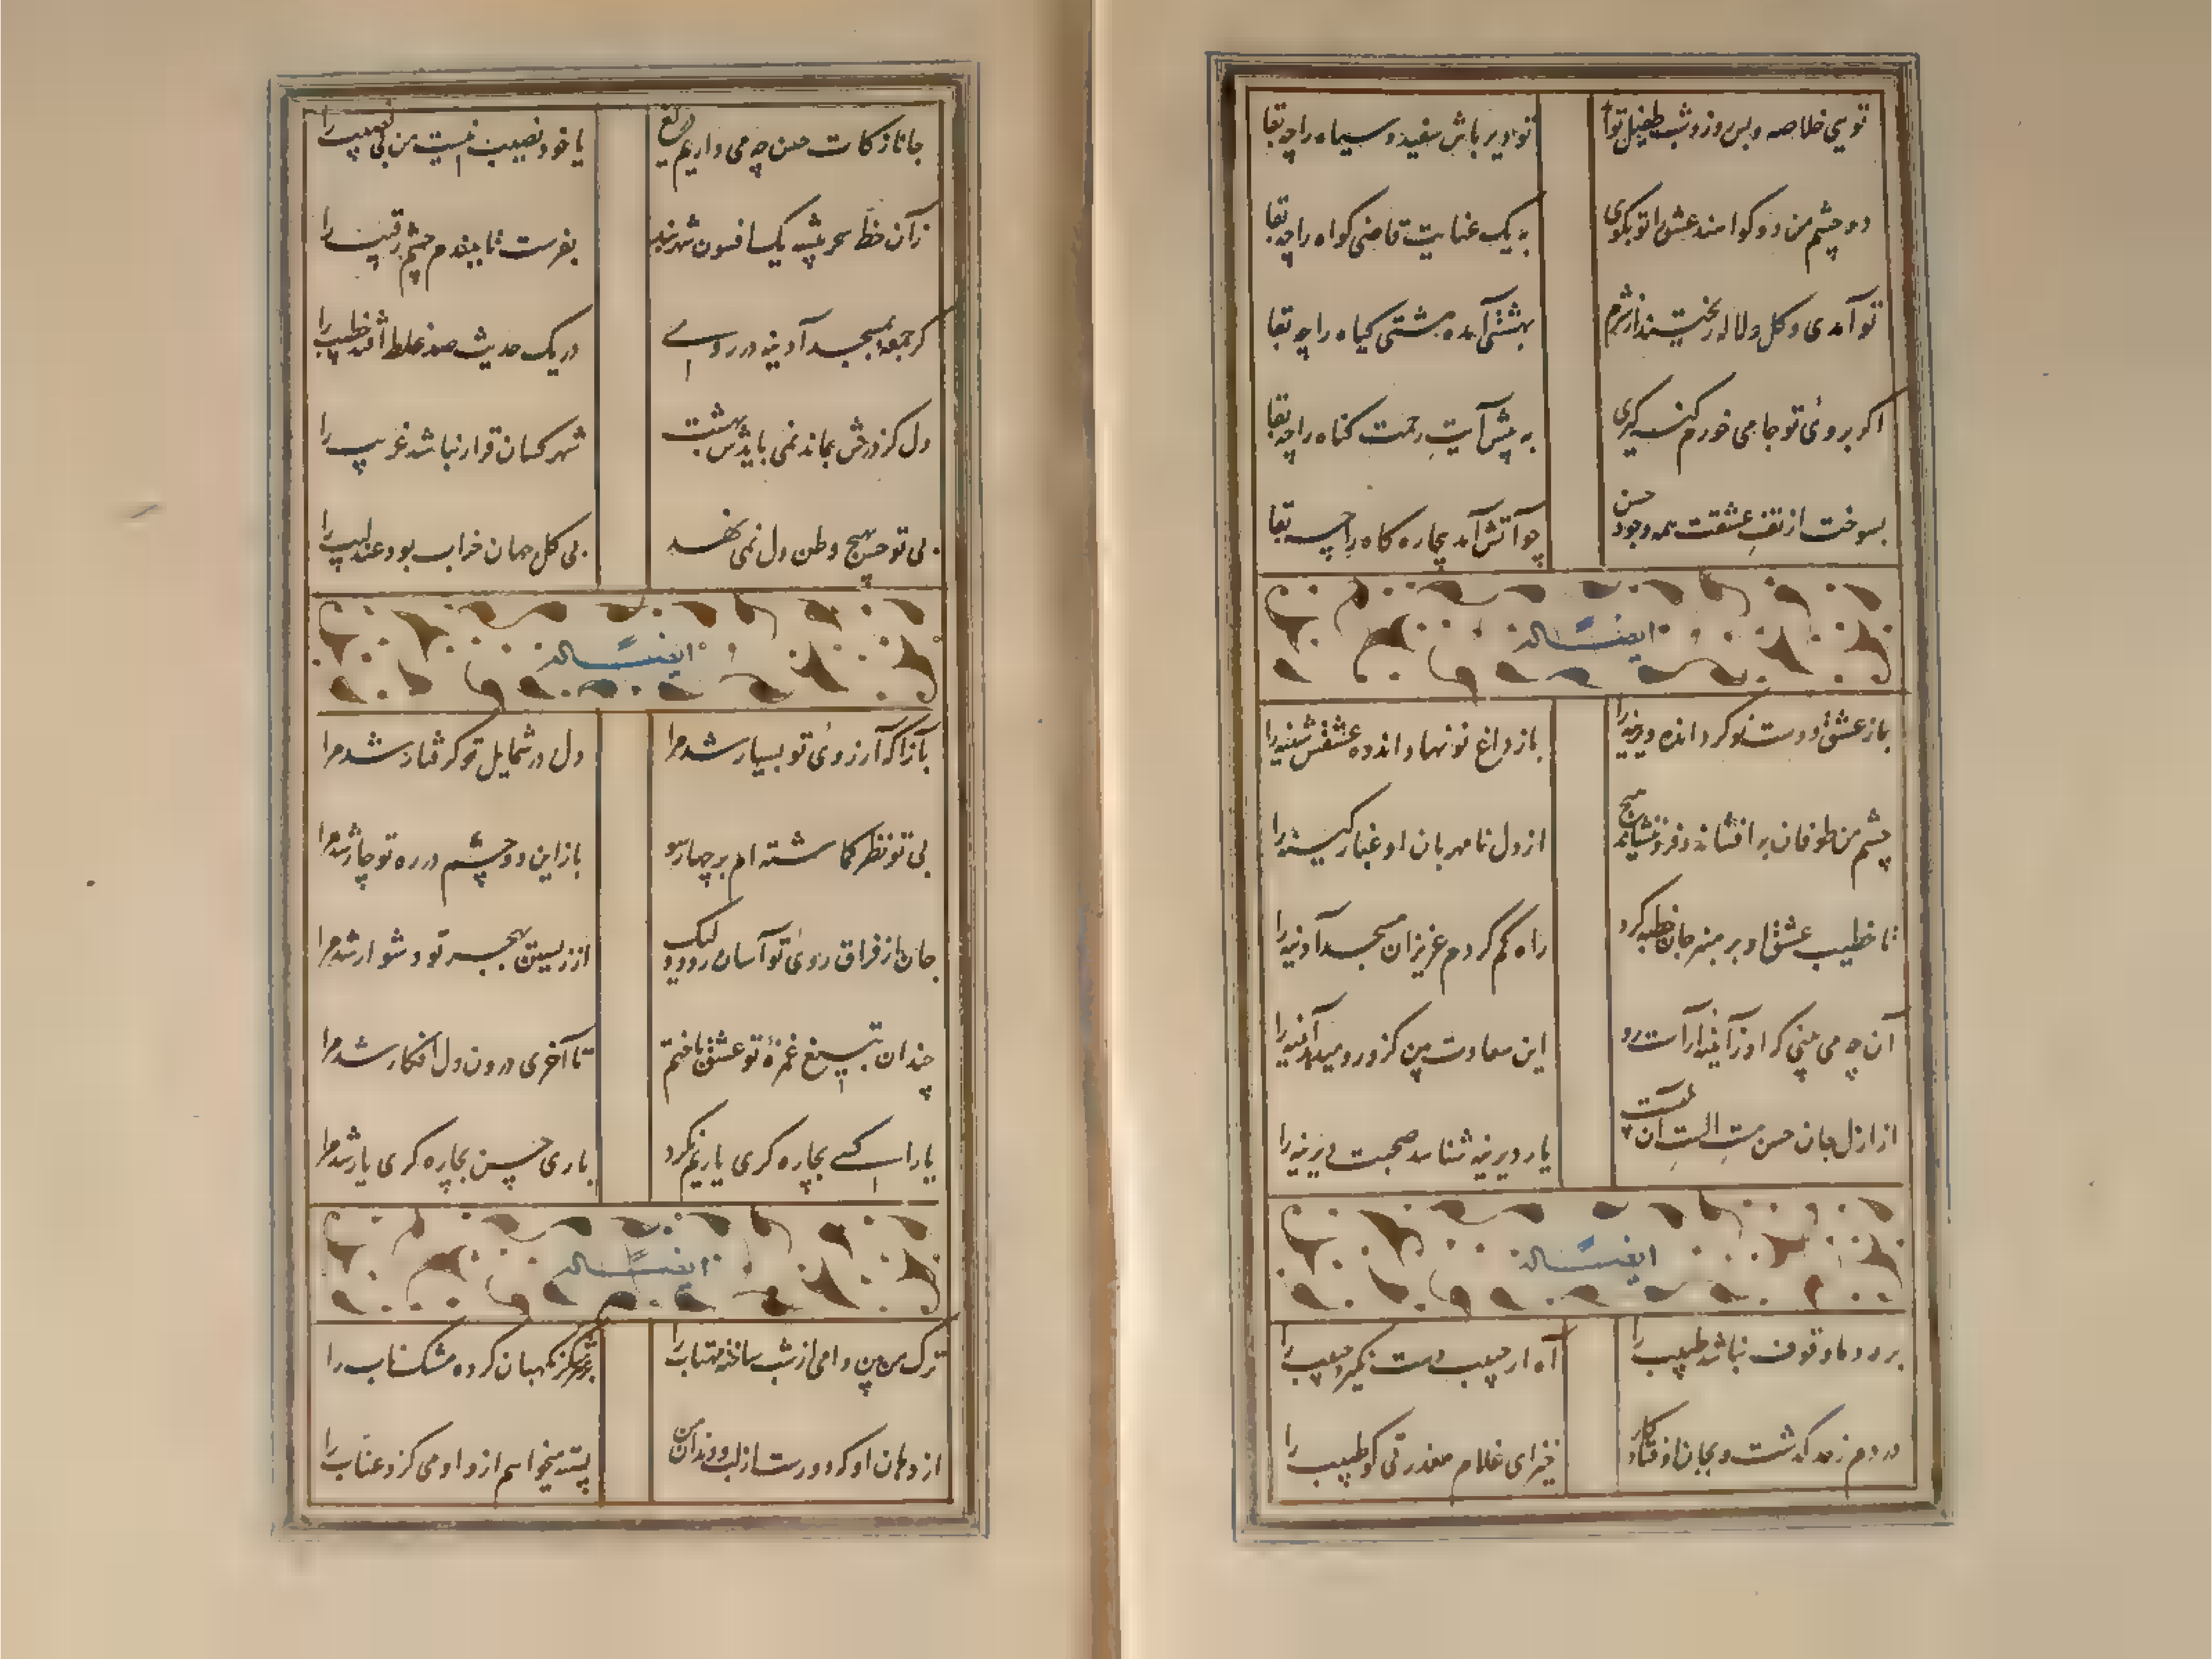 تویی خلاصه و بس روز و شب طفیل تواَ
تو دیر باش سفید و سیاه را چه بقا
دو چشم من دو کوا مند عشق را تو بکوی
به یک عنایت قاضی کواه را چه بقا
تو آمدی و کل و لاله ریختند از شرم
بهشتی آمده مشتی کیاه را چه بقا
اکر بروئ تو جامی خورم کنه کیری
به پیش آیت رحمت کناه را چه بقا
بسوخت از تف عشقت همه وجود حسن
چو آتش آمد بیچاره کاه را چه بقا
ایضاً له
باز عشق دوست نو کرد انده دیرینه را
باز داغ نو نهاد اندوه عشقش سینه را
چشم من طوفان بر افشاند و فرو ننشاند هیچ
از دل نامهربان او غبار کینه را
تا خطیب عشق او بر منبر جان خطبه کرد
راه کم کردم عزیزان مسجد آدینه را
آن چه می بینی کز او از آینه آراست رو
این سعادت بین کزو رو میدهد آینه را
از ازل جان حسن مست الست آن مست
یار دیرینه شناسد صحبت دیرینه را
ایضاً له
بر درد ما وقوف نباشد طبیب را
آه ار حبیب دست نکیرد حبیب را
دردم ز حد کذشت و بجان اوفتاد کار
خیز ای غلام معذرتی کو طبیب را
جانا زکات حسن چه می داریم دریغ
یا خود نصیب نیست من بی نصیب را
زان خط سحر پیشه یک افسون شهر بند
بفرست تا ببندم چشم رقیب را
کر جمعه بمسجد آدینه در روے
در یک حدیث صد غلط افتد خطیب را
دل کز درش بماند نمی بایدش بهشت
شهر کسان قرار نباشد غریب را
بی تو حسن بهیچ وطن دل نمی نهد
بی کل جهان خراب بود عندلیب را
ایضاً له
بازآ که آرزوئ تو بسیار شد مرا
دل در شمایل تو کرفتار شد مرا
بی تو نظر کماشته ام بر چهار سو
باز این دو چشم در ره تو چار شد مرا
جان از فراق روئ تو آسان رود ولیک
از زیستن بهجر تو دشوار شد مرا
چندان بتیغ غمزهٔ تو عشق باختم
تا آخری درون دل افکار شد مرا
یارا کسے بچاره کری یاریم نکرد
باری حسن بچاره کری یار شد مرا
ایضاً له
ترک من بین دامی از شب ساخته مهتاب را
نکهبان کرده مشک ناب را
از دهان او کرد درست از لب و دندان من
پسته میخواهم ازو او می کزد عناب را